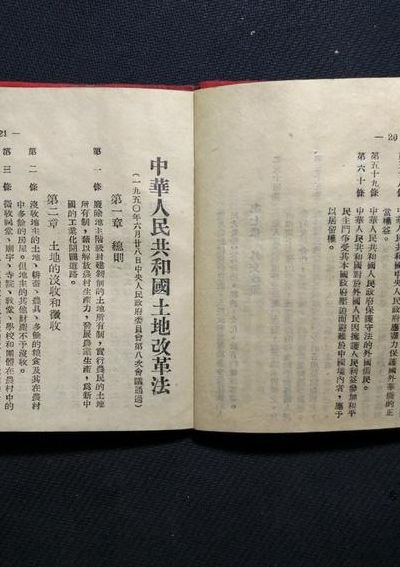 — 20
當權益。
第五十九條 中華人民共和國人民政府保護守法的外國僑民。
第六十條 中華人民共和國對於外國人民因擁護人民利益參加和平
民主鬥爭受其本國政府壓迫而避難於中國境內者，應予
以居留權。
21 —
中華人民共和國土地改革法
（一九五〇年六月廿八日中央人民政府委員會第八次會議通過）
第一章 總則
第一條 廢除地主階級封建剝削的土地所有制，實行農民的土地
所有制，藉以解放農村生產力，發展農業生產，為新中
國的工業化開闢道路。
第二章 土地的沒收和徵收
第二條 沒收地主的土地、耕畜、農具、多餘的糧食及其在農村
中多餘的房屋。但地主的其他財產不予沒收。
第三條 徵收祠堂、廟宇、寺院、教堂、學校和團體在農村中的